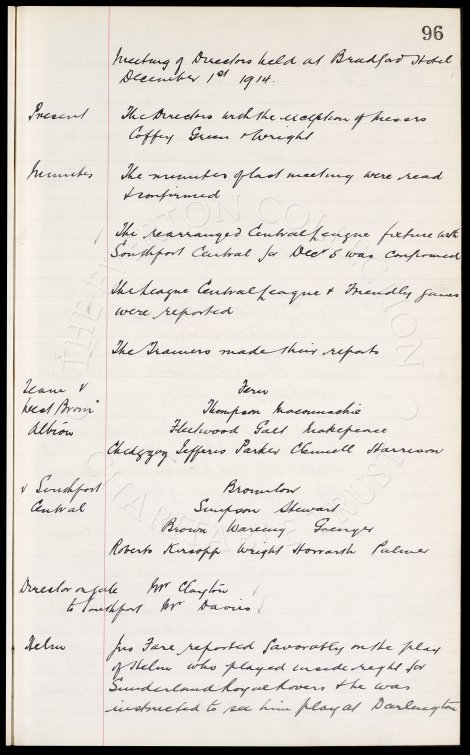 96
Meeting of Directors held at Bradford Hotel
December 1st 1914.
Present The Directors with the exception of Messrs
Coffey Green & Wright
Minutes The minutes of last meeting were read
& confirmed
The rearranged Central League fixture with
Southport Central for Decr 5 was confirmed
The League Central League & Friendly games
were reported
The Trainers made their reports
Team v Fern
West Brom" Thompson Maconnachie
Albion Fleetwood Galt Makepeace
Chedgzoy Jefferis Parker Clennell Harrison
v Southport Bromilow
Central Simpson Stewart
Brown Wareing Grenyer
Roberts Kirsopp Wright Howarth Palmer
Director on gate Mr Clayton
to Southport Mr Davies
Helm Jno Fare reported favorably on the play
of Helm who played inside right for
Sunderland Royal Rovers & he was
instructed to see him play at Darlington
THE EVERTON COLLECTION
CHARITABLE TRUST